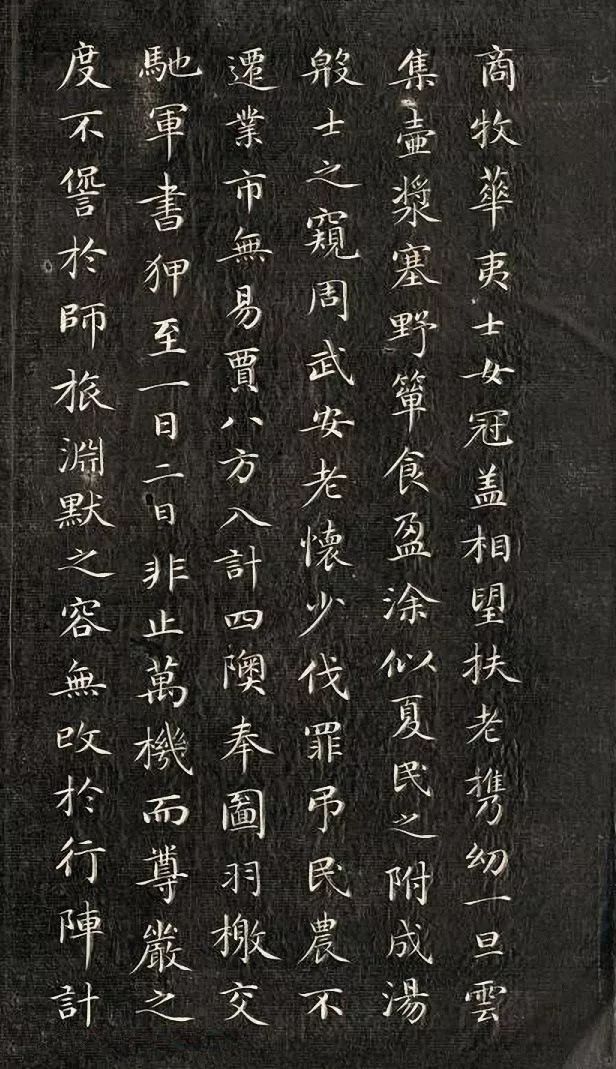 商牧華夷士女冠盖相望扶老攜幼一旦雲
集壺漿塞野簞食盈涂似夏民之附成湯
殷士之窺周武安老懷少伐罪吊民農不
遷業市無易賈八方入計四隩奉圖羽檄交
馳軍書狎至一日二日非止萬機而尊嚴之
度不諐於師旅淵默之容無改於行陣計